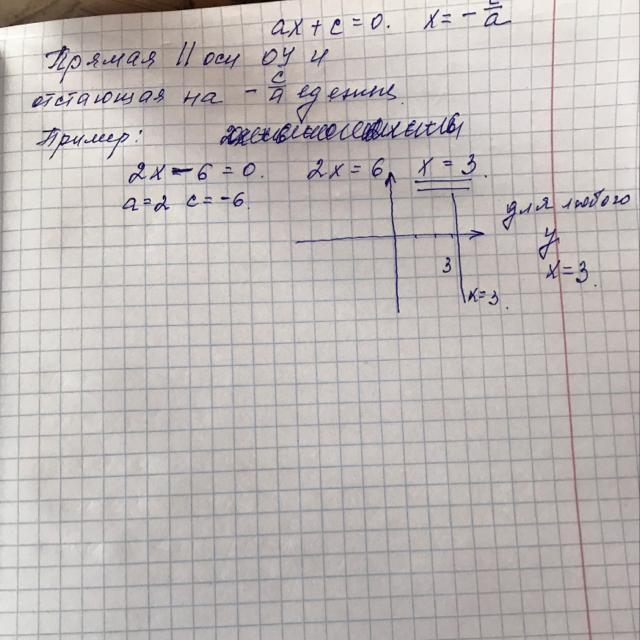 ax + c = 0. x = - c/a
Прямая || оси OY и
отстающая на - c/a единиц.
Пример:
2x - 6 = 0. 2x = 6 x = 3.
a = 2 c = -6.
для любого
y
x = 3.
3
x = 3.